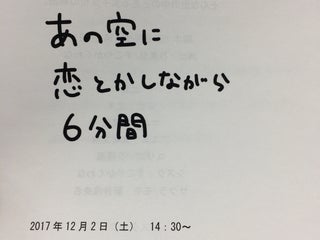 あの空に
恋とかしながら
6分間
2017年12月2日（土） 14：30～